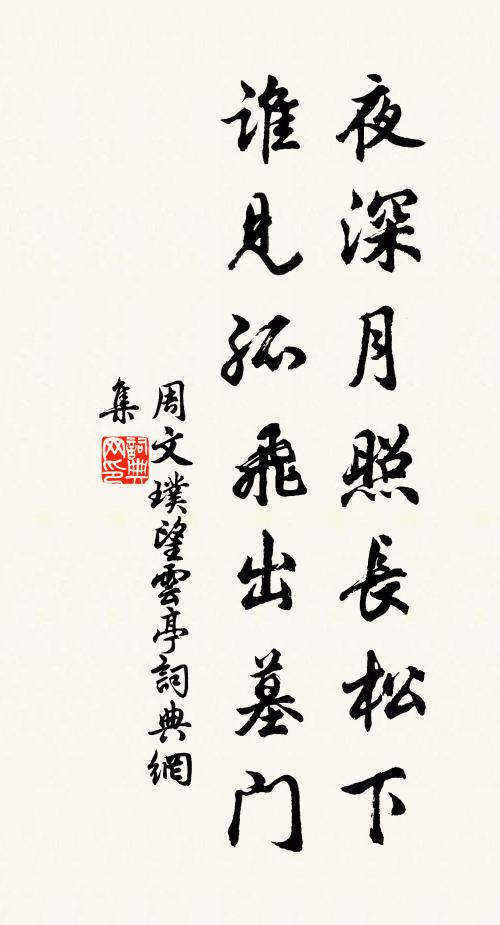 夜深月照長松下
誰見孤飛出墓门
周文璞望雲亭詞典網
集
詞典
网印